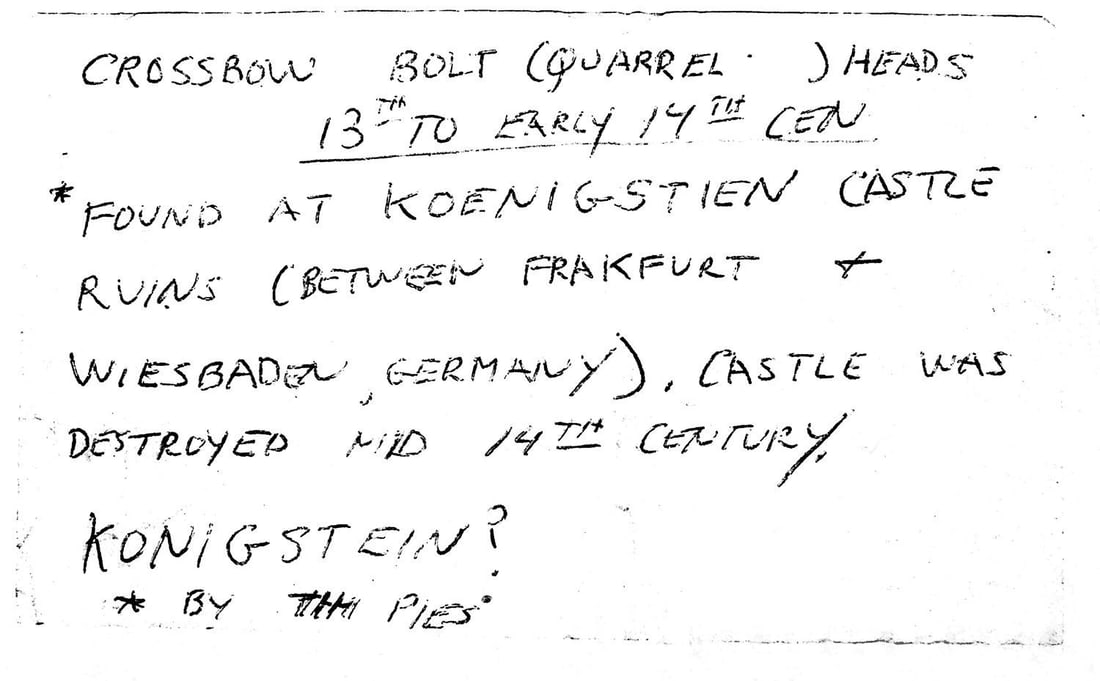 CROSSBOW BOLT (QUARREL ) HEADS
13TH TO EARLY 14TH CEN
* FOUND AT KOENIGSTIEN CASTLE
RUINS (BETWEEN FRAKFURT +
WIESBADEN, GERMANY), CASTLE WAS
DESTROYED MID 14TH CENTURY.
KONIGSTEIN?
* BY PIES